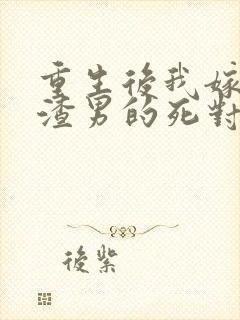 重生後我嫁
渣男的死對
後紫